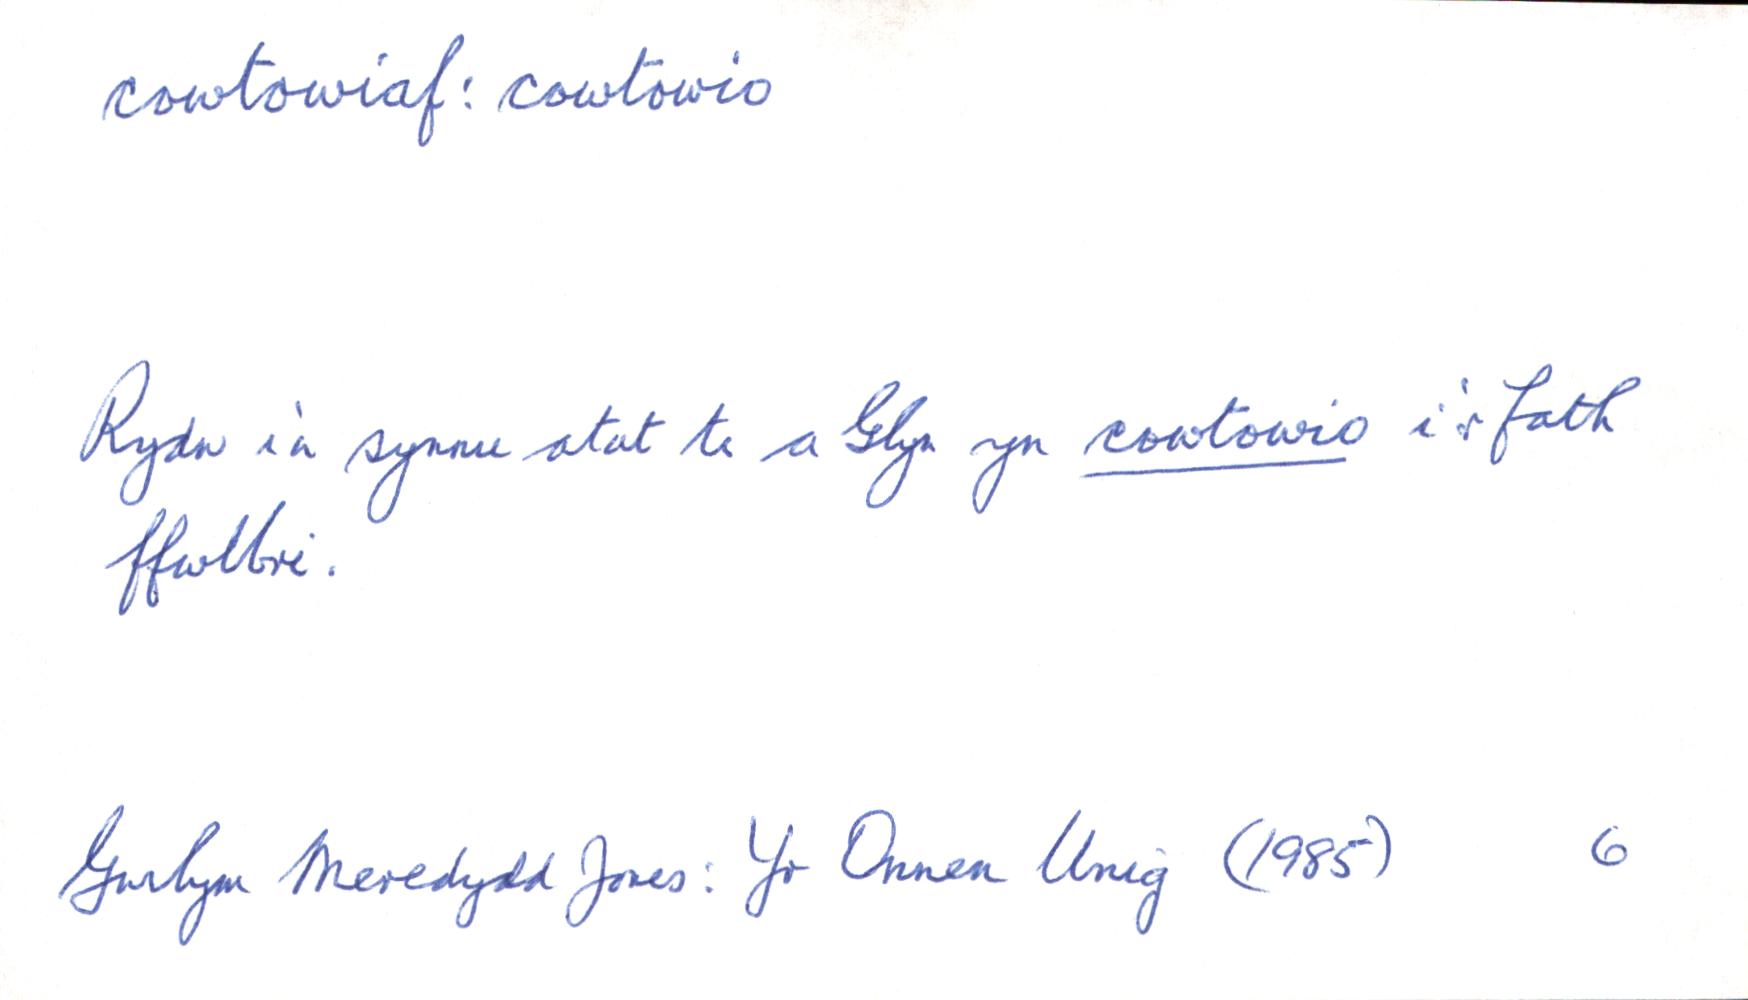 cowtowiaf: cowtowio
Rydw i'n synnu atat ti a Glyn yn cowtowio i'r fath
ffwlbri.
Gwilym Meredydd Jones: Yr Onnen Unig (1985) 6